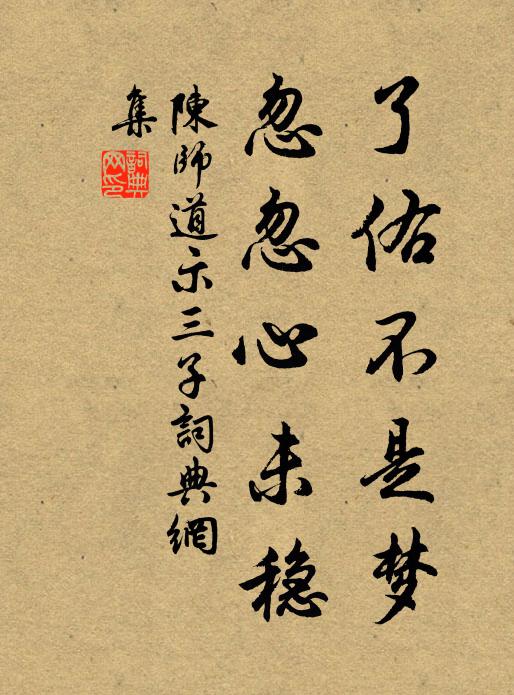 了佑不是梦
忽忽心未稳
陳師道示三子詞典網
集
詞典
网印